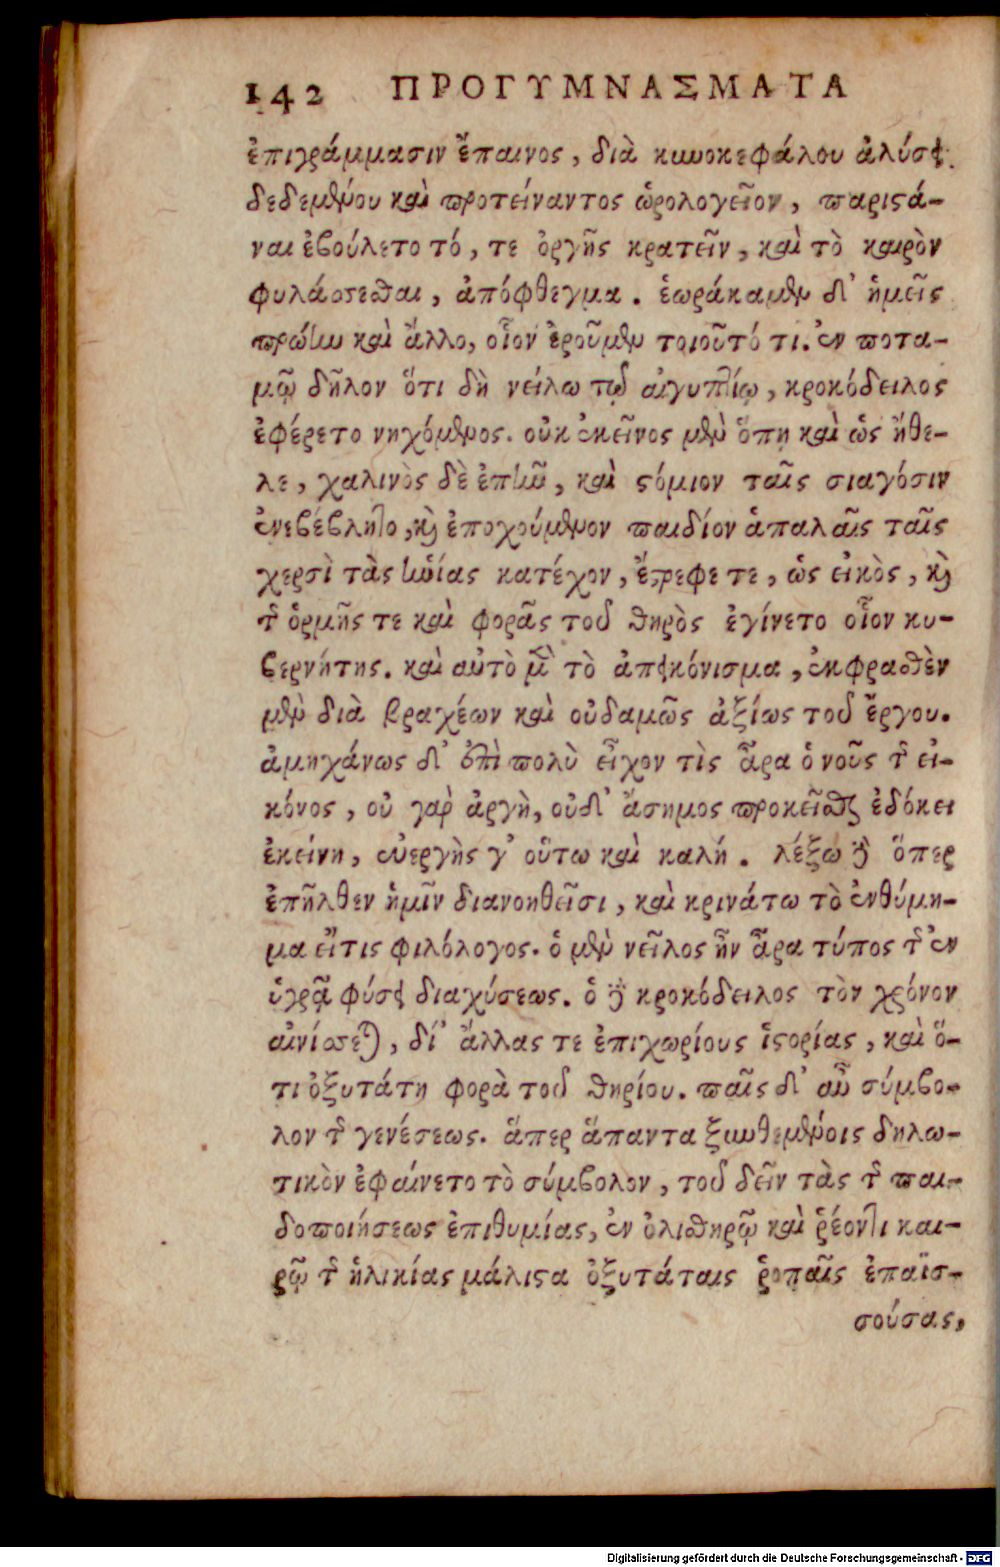 142 ΠΡΟΓΥΜΝΑΣΜΑΤΑ
ἐπιγράμμασιν ἔπαινος, διὰ κυνοκεφάλου ἁλύσει
δεδεμένου καὶ προτείναντος ὡρολογεῖον, παριστά-
ναι ἐβούλετο τό, τε ὀργῆς κρατεῖν, καὶ τὸ καιρὸν
φυλάττεσθαι, ἀπόφθεγμα. ἑωράκαμεν δ' ἡμεῖς
πρώην καὶ ἄλλο, οἷον ἐροῦμεν τοιοῦτό τι. ἐν ποτα-
μῷ δῆλον ὅτι δὴ νείλω τῷ αἰγυπτίῳ, κροκόδειλος
ἐφέρετο νηχόμενος. οὐκ ἐκεῖνος μὲν ὅπη καὶ ὡς ἤθε-
λε, χαλινὸς δὲ ἐπῆν, καὶ στόμιον ταῖς σιαγόσιν
ἐνεβέβλητο, καὶ ἐποχούμενον παιδίον ἁπαλαῖς ταῖς
χερσὶ τὰς ἡνίας κατέχον, ἔστρεφε τε, ὡς εἰκὸς, καὶ
τῆς ὁρμῆς τε καὶ φορᾶς τοῦ θηρὸς ἐγίνετο οἷον κυ-
βερνήτης. καὶ αὐτὸ μὲν τὸ ἀπεικόνισμα, ἐκφρασθὲν
μὲν διὰ βραχέων καὶ οὐδαμῶς ἀξίως τοῦ ἔργου.
ἀμηχάνως δ' ἐπὶ πολὺ εἶχον τὶς ἆρα ὁ νοῦς τῆς εἰ-
κόνος, οὐ γαρ ἀργὴ, οὐδ' ἄσημος προκεῖσθαι ἐδόκει
ἐκείνη, εὐεργὴς γ' οὕτω καὶ καλή. λέξω δὲ ὅπερ
ἐπῆλθεν ἡμῖν διανοηθεῖσι, καὶ κρινάτω τὸ ἐνθύμη-
μα εἴτις φιλόλογος. ὁ μὲν νεῖλος ἦν ἆρα τύπος τῆς ἐν
ὑγρᾷ φύσει διαχύσεως. ὁ δὲ κροκόδειλος τὸν χρόνον
αἰνίττεται, δί' ἄλλας τε ἐπιχωρίους ἱστορίας, καὶ ὅ-
τι ὀξυτάτη φορὰ τοῦ θηρίου. παῖς δ' αὖ σύμβο-
λον τῆς γενέσεως. ἅπερ ἅπαντα ξυνθεμένοις δηλω-
τικὸν ἐφαίνετο τὸ σύμβολον, τοῦ δεῖν τὰς τῆς παι-
δοποιήσεως ἐπιθυμίας, ἐν ὀλισθηρῷ καὶ ῥέοντι και-
ρῷ τῆς ἡλικίας μάλιστα ὀξυτάταις ῥοπαῖς ἐπαϊσ-
σούσας,
Digitalisierung gefördert durch die Deutsche Forschungsgemeinschaft - DFG